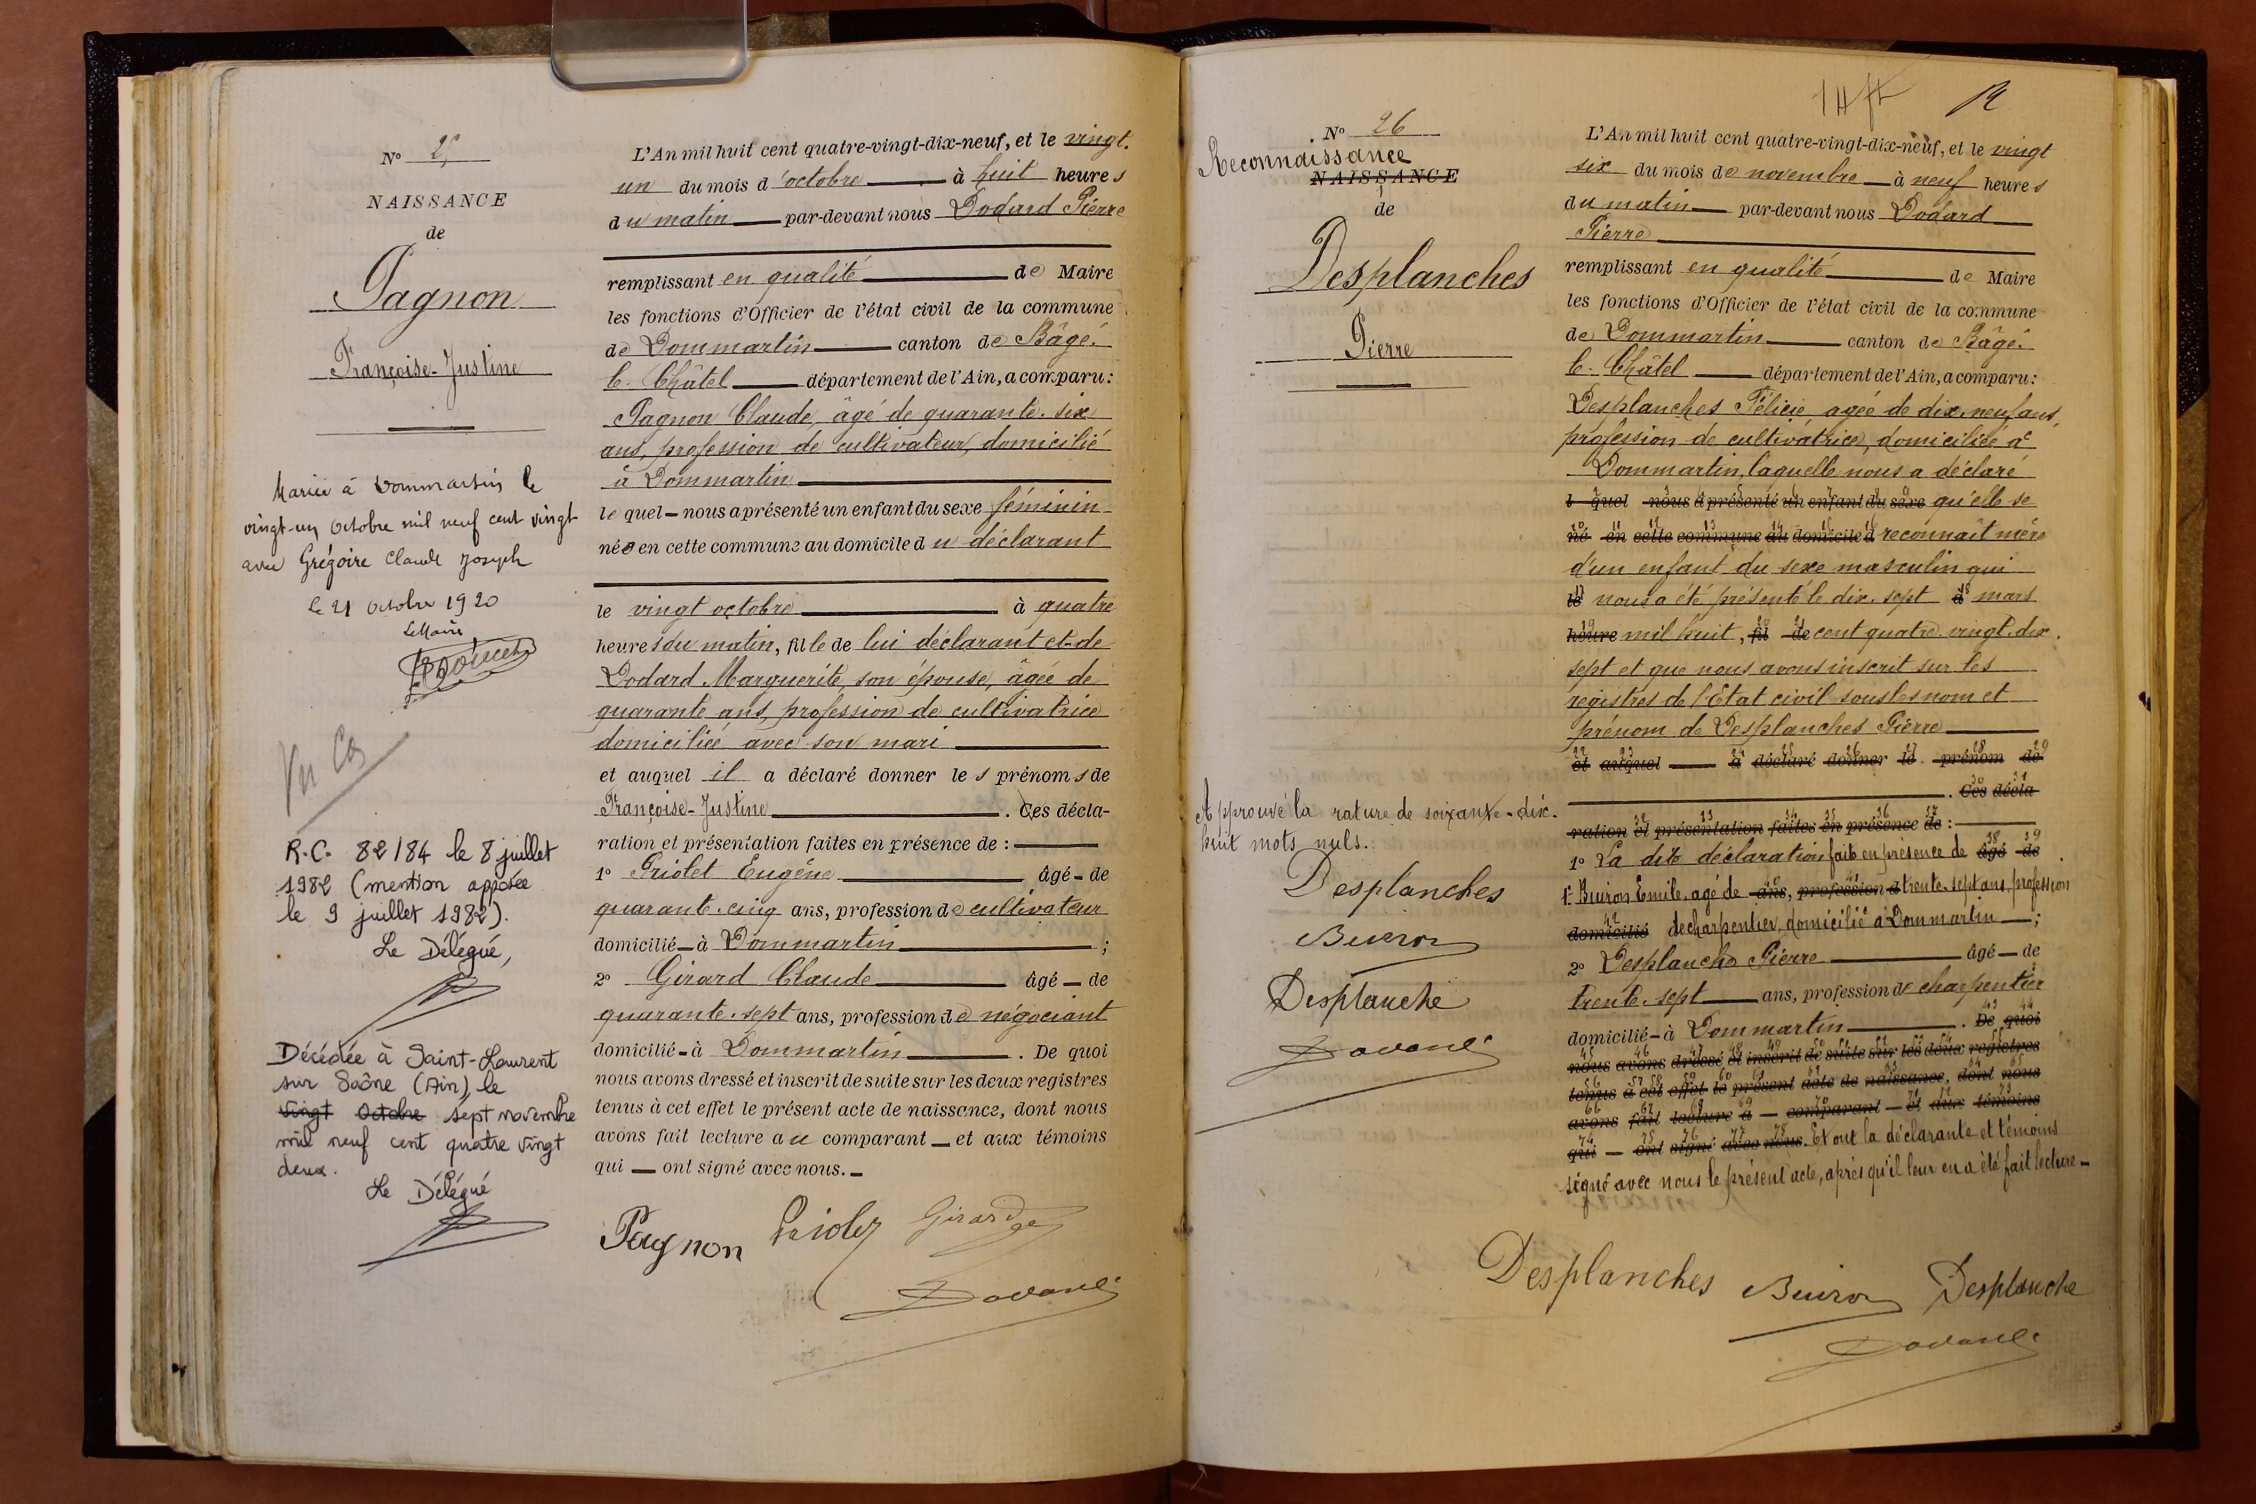 N° 25
NAISSANCE
de
Pagnon
Françoise-Justine
Mariée à Dommartin le
vingt-un octobre mil neuf cent vingt
avec Grégoire Claude Joseph
le 21 octobre 1920
Le Maire
Vu
R.C. 82/84 le 8 juillet
1982 (mention apposée
le 9 juillet 1982).
Le Délégué,
Décédée à Saint-Laurent
sur Saône (Ain) le
vingt octobre sept novembre
mil neuf cent quatre vingt
deux.
Le Délégué
L'An mil huit cent quatre-vingt-dix-neuf, et le vingt.
un du mois d'octobre à huit heures
du matin par-devant nous Dodard Pierre
remplissant en qualité de Maire
les fonctions d'Officier de l'état civil de la commune
de Dommartin canton de Bâgé.
le. Châtel département de l'Ain, a comparu:
Pagnon Claude, âgé de quarante-six
ans, profession de cultivateur, domicilié
à Dommartin
lequel nous a présenté un enfant du sexe féminin
née en cette commune au domicile du déclarant
le vingt octobre à quatre
heures du matin, fille de lui déclarant et de
Dodard Marguerite, son épouse, âgée de
quarante ans, profession de cultivatrice
domiciliée avec son mari
et auquel il a déclaré donner les prénoms de
Françoise-Justine . Ces décla-
ration et présentation faites en présence de :
1° Griolet Eugène âgé de
quarante-cinq ans, profession de cultivateur
domicilié à Dommartin ;
2° Girard Claude âgé de
quarante-sept ans, profession de négociant
domicilié à Dommartin . De quoi
nous avons dressé et inscrit de suite sur les deux registres
tenus à cet effet le présent acte de naissance, dont nous
avons fait lecture au comparant et aux témoins
qui ont signé avec nous.
Pagnon Griolet Girard
Dodard
N° 26
Reconnaissance
NAISSANCE
de
Desplanches
Pierre
Approuvé la rature de soixante-dix-
huit mots nuls.
Desplanches
Buiron
Desplanche
Dodard
L'An mil huit cent quatre-vingt-dix-neuf, et le vingt
six du mois de novembre à neuf heures
du matin par-devant nous Dodard
Pierre
remplissant en qualité de Maire
les fonctions d'Officier de l'état civil de la commune
de Dommartin canton de Bâgé.
le. Châtel département de l'Ain, a comparu:
Desplanches Félicie, agée de dix-neuf ans,
profession de cultivatrice, domiciliée à
Dommartin, laquelle nous a déclaré
l quel nous a présenté un enfant du sexe qu'elle se
né en cette commune au domicile d reconnaît mère
d'un enfant du sexe masculin qui
le nous a été présenté le dix-sept à mars
heure mil huit, fil de cent quatre-vingt-dix.
sept et que nous avons inscrit sur les
registres de l'Etat civil sous les nom et
prénom de Desplanches Pierre
et auquel a déclaré donner le prénom de
. Ces décla
ration et présentation faites en présence de :
1° La dite déclaration faite en présence de âgé de
1° Buiron Emile, agé de ans, profession d trente-sept ans, profession
domicilié de charpentier, domicilié à Dommartin ;
2° Desplanche Pierre âgé de
trente-sept ans, profession de charpentier
domicilié à Dommartin . De quoi
nous avons dressé et inscrit de suite sur les deux registres
tenus à cet effet le présent acte de naissance, dont nous
avons fait lecture a comparant et aux témoins
qui ont signé avec nous. Et ont la déclarante et témoins
signé avec nous le présent acte, après qu'il leur en a été fait lecture
Desplanches Buiron Desplanche
Dodard